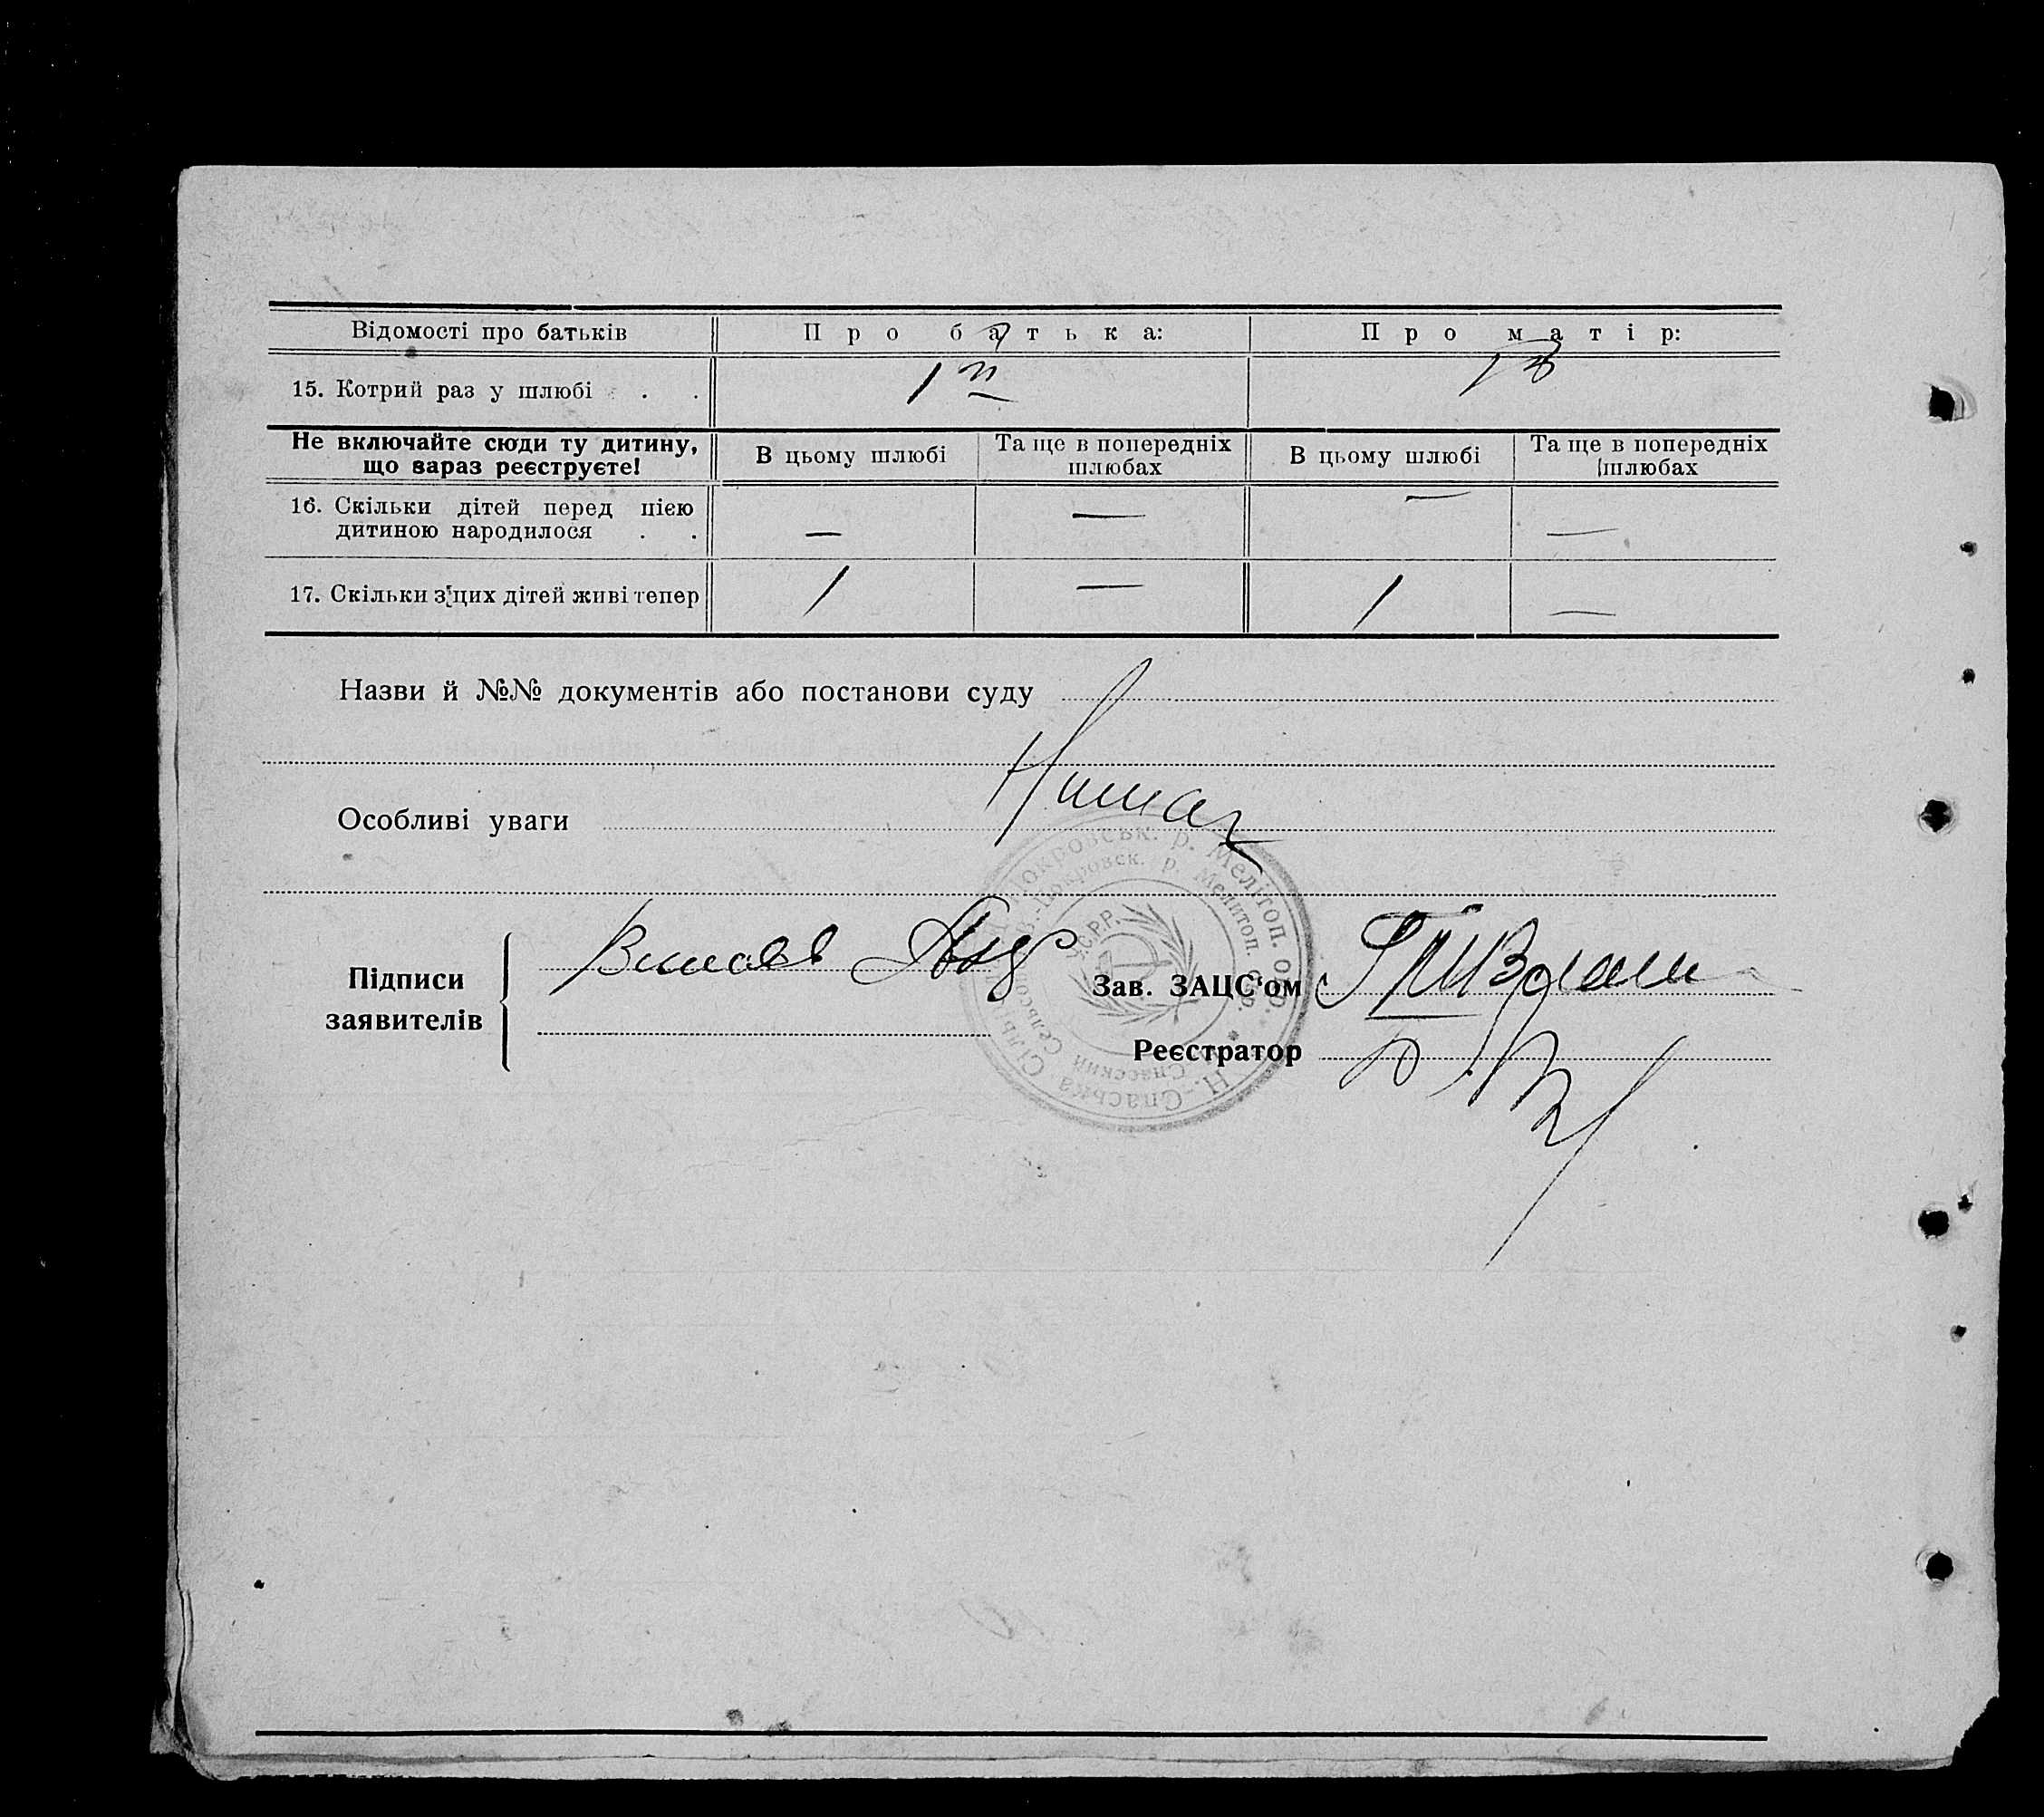 Відомості про батьків
Про батька:
Про матір:
15. Котрий раз у шлюбі . .
1й
1й
Не включайте сюди ту дитину,
що зараз реєструєте!
В цьому шлюбі
Та ще в попередніх
шлюбах
В цьому шлюбі
Та ще в попередніх
шлюбах
16. Скільки дітей перед цією
дитиною народилося . .
—
—
—
—
17. Скільки з цих дітей живі тепер
1
—
1
—
Назви й №№ документів або постанови суду
Особливі уваги
Підписи
заявителів
Зав. ЗАЦС'ом
Реєстратор
Н.-Спаська Сільрада Покровськ. р. Мелітоп. окр.
Спасский Сельсов. Покровск. р. Мелитоп. окр.
У.С.Р.Р.